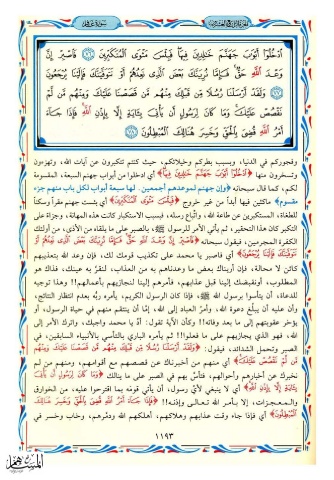 ٱدْخُلُوٓاْ أَبْوَٰبَ جَهَنَّمَ خَٰلِدِينَ فِيهَاۖ فَبِئْسَ مَثْوَى ٱلْمُتَكَبِّرِينَ ٧٦ فَٱصْبِرْ إِنَّ
وَعْدَ ٱللَّهِ حَقٌّۚ فَإِمَّا نُرِيَنَّكَ بَعْضَ ٱلَّذِى نَعِدُهُمْ أَوْ نَتَوَفَّيَنَّكَ فَإِلَيْنَا يُرْجَعُونَ
٧٧ وَلَقَدْ أَرْسَلْنَا رُسُلًا مِّن قَبْلِكَ مِنْهُم مَّن قَصَصْنَا عَلَيْكَ وَمِنْهُم مَّن لَّمْ
نَقْصُصْ عَلَيْكَۗ وَمَا كَانَ لِرَسُولٍ أَن يَأْتِىَ بِـَٔايَةٍ إِلَّا بِإِذْنِ ٱللَّهِۚ فَإِذَا جَآءَ
أَمْرُ ٱللَّهِ قُضِىَ بِٱلْحَقِّ وَخَسِرَ هُنَالِكَ ٱلْمُبْطِلُونَ ٧٨
وفجوركم في الدنيا، وبسبب بطركم وخيلائكم، حيث كنتم تتكبرون عن آيات الله، وتهزءون
وتسخرون منها ﴿ٱدْخُلُوٓاْ أَبْوَٰبَ جَهَنَّمَ خَٰلِدِينَ فِيهَا﴾ أي ادخلوا من أبواب جهنم السبعة، المقسومة
لكم، كما قال سبحانه ﴿وإن جهنم لموعدهم أجمعين. لها سبعة أبواب لكل باب منهم جزء
مقسوم﴾ ماكثين فيها أبداً من غير خروج ﴿فَبِئْسَ مَثْوَى ٱلْمُتَكَبِّرِينَ﴾ أي بئست جهنم مقراً وسكناً
للطغاة، المستكبرين عن طاعة الله، واتّباع رسله، فبسبب الاستكبار كانت هذه المهانة، وجزاءً على
التكبر كان هذا التحقير، ثم يأتي الأمر للرسول ﷺ، بالصبر على ما يلقاه من الأذى، من أولئك
الكفرة المجرمين، فيقول سبحانه ﴿فَٱصْبِرْ إِنَّ وَعْدَ ٱللَّهِ حَقٌّ فَإِمَّا نُرِيَنَّكَ بَعْضَ ٱلَّذِى نَعِدُهُمْ أَوْ
نَتَوَفَّيَنَّكَ فَإِلَيْنَا يُرْجَعُونَ﴾ أي فاصبر يا محمد على تكذيب قومك لك، فإن وعد الله بتعذيبهم
كائن لا محالة، فإن أريناك بعض ما وعدناهم به من العذاب، لتقرَّ به عينك، فذاك هو
المطلوب، أونقبضك إلينا قبل عذابهم، فأمرهم إلينا لنجازيهم بأعمالهم!! وهذا توجيه
للدعاة، أن يتأسوا برسول الله ﷺ، فإذا كان الرسول الكريم، يأمره ربُّه بعدم انتظار النتائج،
وأن عليه أن يبلِّغ دعوة الله، وأمرُ العباد إلى الله، إمَّا أن ينتقم منهم في حياة الرسول، أو
يؤخر عقوبتهم إلى ما بعد وفاته!! وكأن الآية تقول: أدِّ يا محمد واجبك، واترك الأمر إلى
الله، فهو الذي يجازيهم على ما فعلوا!! ثم يأمره الباري بالتأسي بالأنبياء السابقين، في
الصبر وتحمل الشدائد، فيقول: ﴿وَلَقَدْ أَرْسَلْنَا رُسُلًا مِّن قَبْلِكَ مِنْهُم مَّن قَصَصْنَا عَلَيْكَ وَمِنْهُم
مَّن لَّمْ نَقْصُصْ عَلَيْكَ﴾ أي منهم من أخبرناك عن قصصهم مع أقوامهم، ومنهم من لم
نخبرك عن أخبارهم وأحوالهم، فتأسَّ بهم في الصبر على ما ينالك ﴿وَمَا كَانَ لِرَسُولٍ أَن يَأْتِىَ
بِـَٔايَةٍ إِلَّا بِإِذْنِ ٱللَّهِ﴾ أي لا ينبغي لأيِّ رسول، أن يأتي قومه بما اقترحوا عليه، من الخوارق
والمعجزات، إلا بأمر الله تعالى وإذنه!! ﴿فَإِذَا جَآءَ أَمْرُ ٱللَّهِ قُضِىَ بِٱلْحَقِّ وَخَسِرَ هُنَالِكَ
ٱلْمُبْطِلُونَ﴾ أي فإذا جاء وقت عذابهم وهلاكهم، أهلكهم الله ودمَّرهم، وخاب وخسر في
١١٩٣